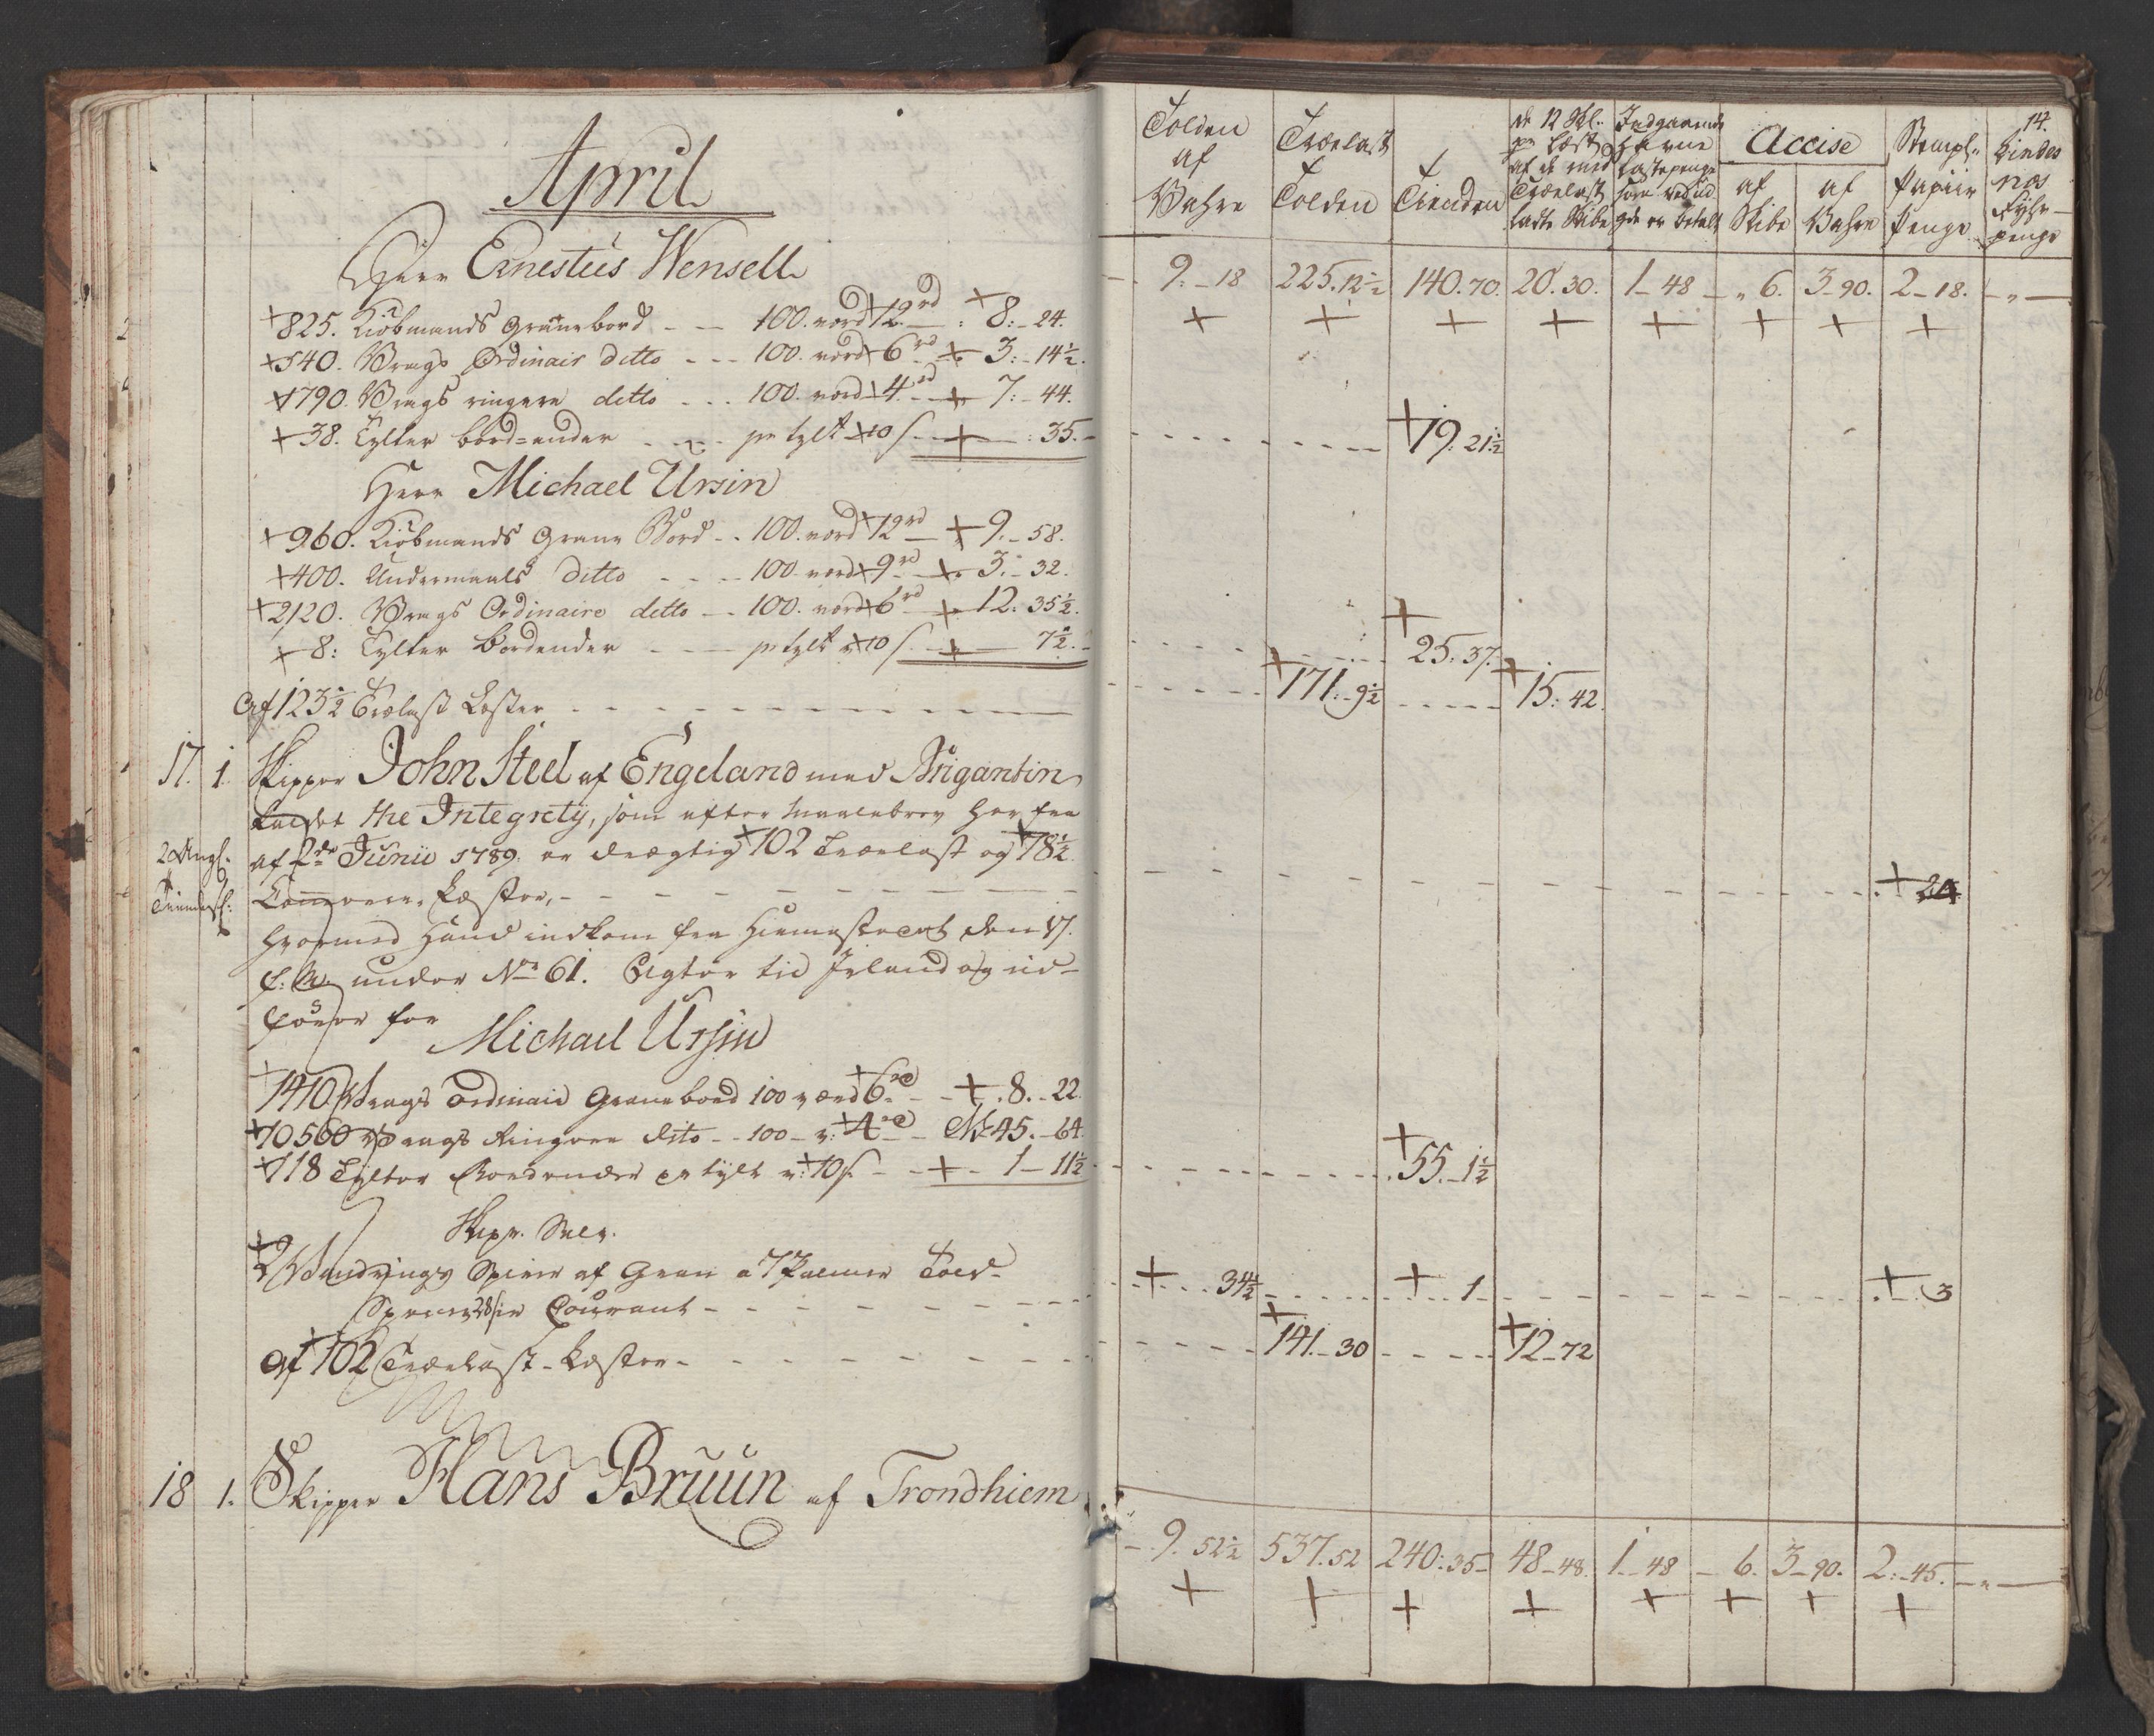 April
Herr Ernestus Wensell
825. Kiöbmands granebord - - 100. værd 12 rd : 8:-24.
540. Vrags Ordinair ditto - - - 100. værd 6 rd 3:-14½.
1790. Vrags ringere ditto - - - 100. værd 4 rd 7:-44.
38. Tylter bord=ender - - - pr tylt 10 s. - :35.-
Herr Michael Ursin
960. Kiöbmands Grane Bord - - 100. værd 12 rd 9.-58.
400. Undermaals ditto - - - 100 værd 9 rd 3.-32.
2120. Vrags Ordinaire ditto - - 100. værd 6 rd 12:35½.
8: Tylter bordender - - - pr tylt v 10 s. 7½.-
Af 123½ Trælast Læster - - - - - - - - -
17. 1. Skipper John Steel af Engeland med Brigantin
kaldet the Integrety, som efter Maalebrev her fra
af 2de Junii 1789. er drægtig 102 Trælast og 78½
Commerce-Læster, - - - - - - - - -
2 Angl.
Tiendes:
hvormed hand indkom fra Hiemstædet den 17.
f: M. under No 61. Agter til Irland og ud-
fører for
Michael Ursin
1410 Vrags Ordinair Granebord 100 værd 6 rd - .8.-22.
10560 Vrags Ringere dito - - 100 - v: 4 rd - 45.-64.
118 Tylter Bordender pr tylt v: 10 s. - - 1-11½
Skipr. Selv.
2 Vandrings Spirer af Gran a 7 Palmer Told-
Courant - - - - - - - - -
af 102 Trælast-Læster - - - - - - - -
18 1. Skipper Hans Bruun af Trondhiem
14.
Tolden af Vahre
Trælast Tolden
Tienden
de 12 Skl. pr Læst af de med Trælast ladte Skibe
Indgaaende Havne Lastepenge som ved ud gde er betalt
Accise
af Skibe
af Vahre
Stempl. Papiir Penge
Lindes næs Fyhr-penge
9.-18 225.12½ 140.70. 20.30. 1-48 - „ 6. 3-90. 2-18. - „ -
19. 21½
25. 37.
171.-9½ 15:42.
24
55.-1½
34½ 1 3
141.-30 12-72
9. 52½ 537.52 240:35- 48-48. 1.-48 - 6. 3-90. 2:-45. - „ -